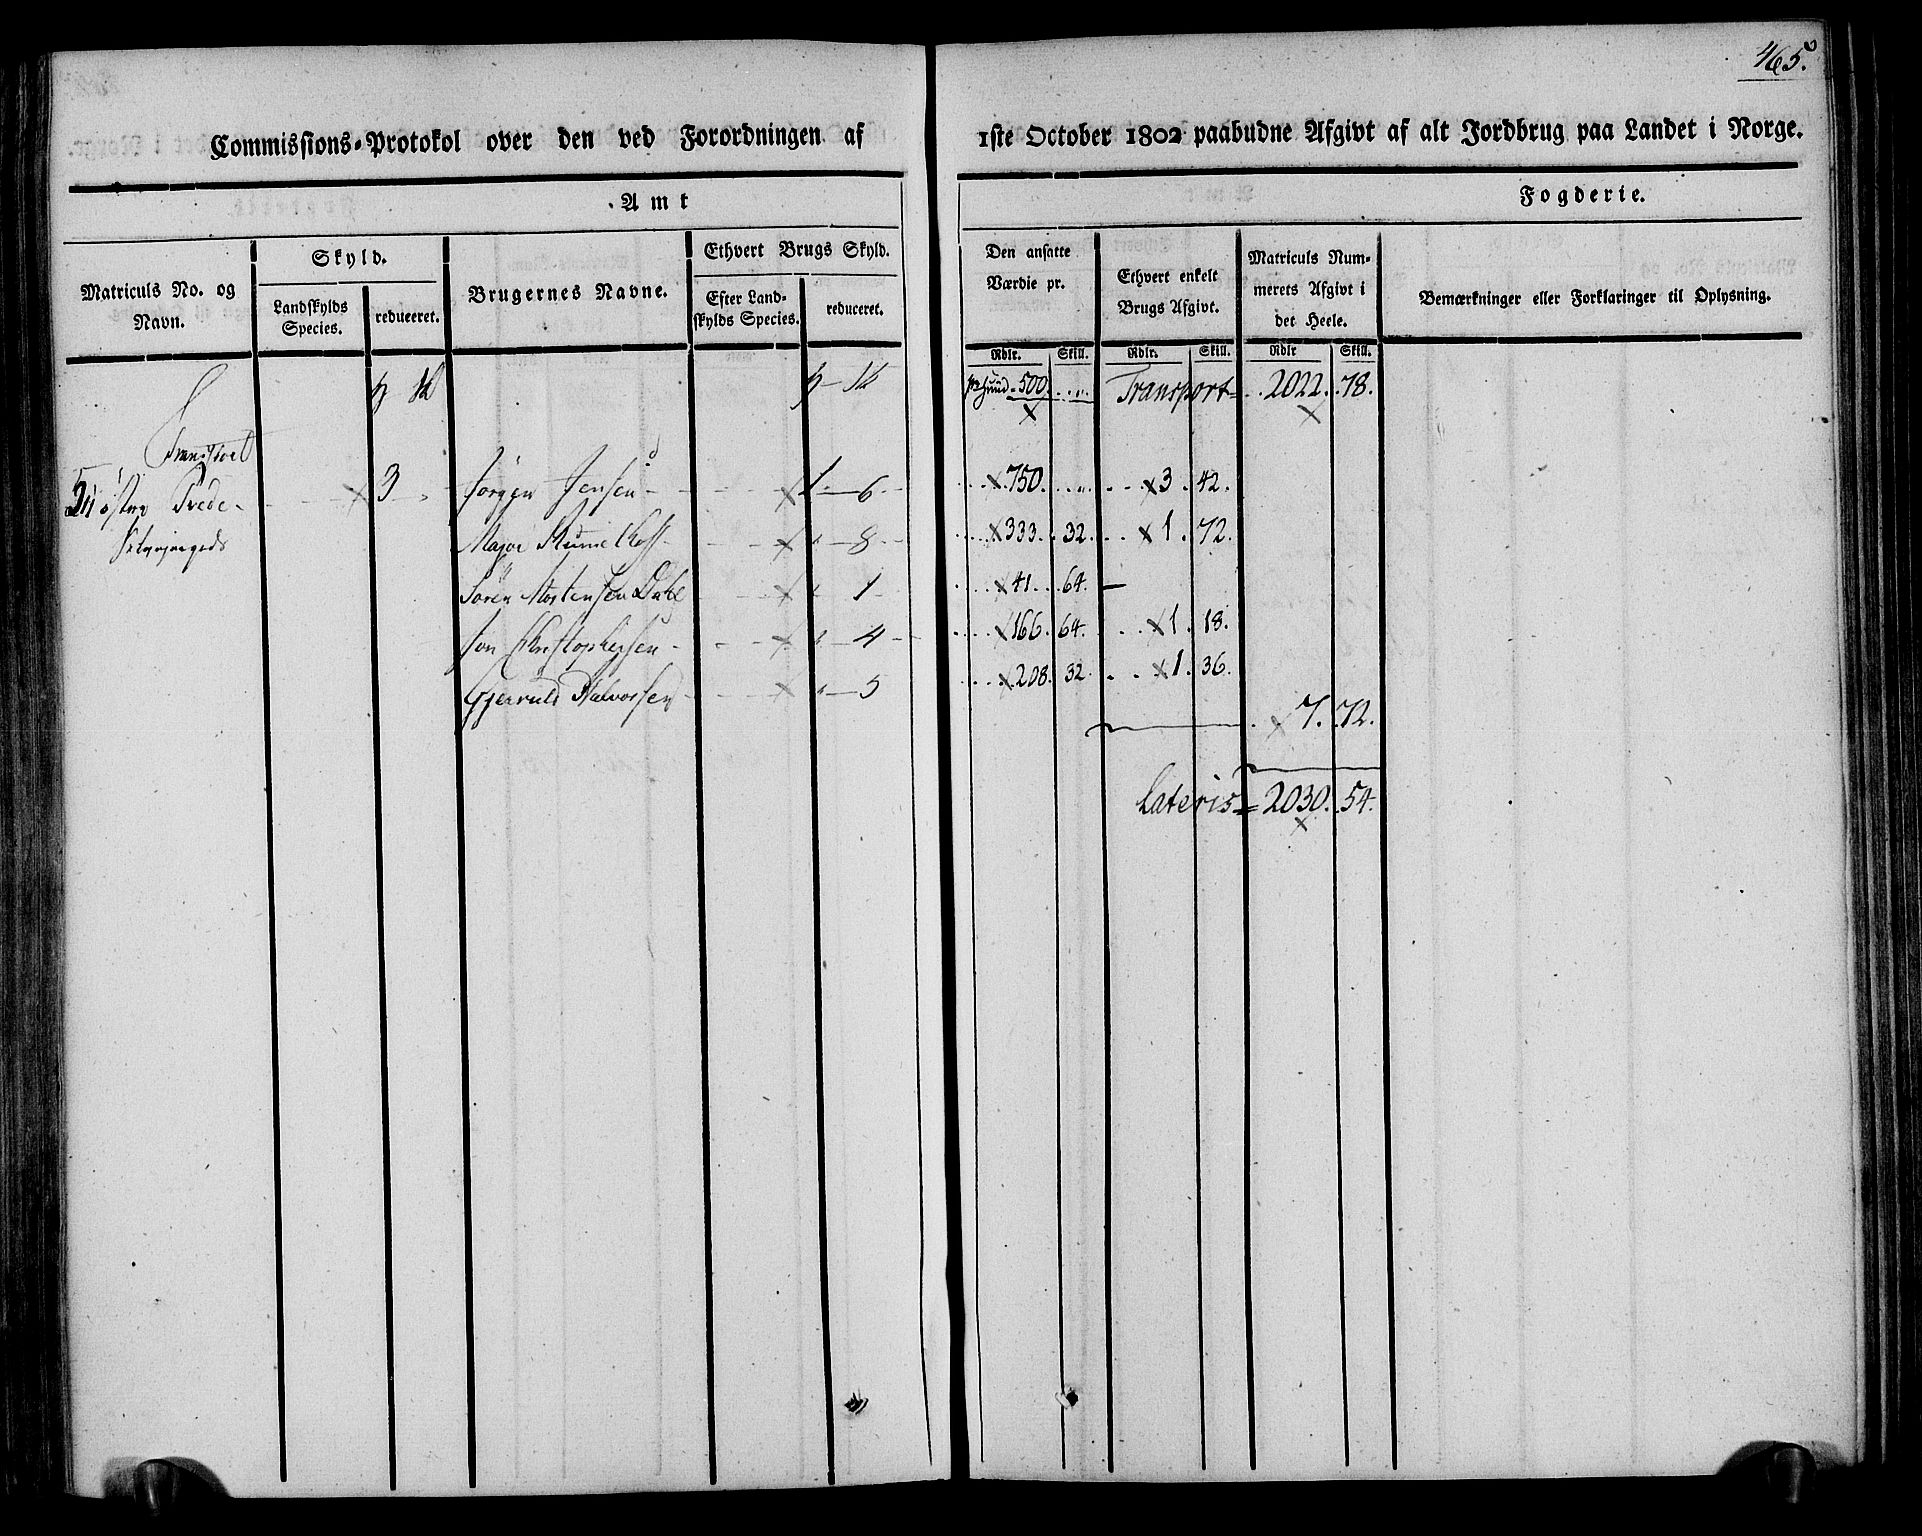 465.
Commissions-Protokol over den ved Forordningen af 1ste October 1802 paabudne Afgivt af alt Jordbrug paa Landet i Norge.
Amt Fogderie.
Matriculs No. og Navn.
Skyld.
Landskylds Species.
reduceret.
Brugernes Navne.
Ethvert Brugs Skyld.
Efter Landskylds Species.
reduceret.
Den ansatte Værdie pr.
Ethvert enkelt Brugs Afgivt.
Matriculs Nummerets Afgivt i det Heele.
Bemærkninger eller Forklaringer til Oplysning.
Rdlr. Skill. Rdlr. Skill. Rdlr Skill.
500 Transport 2022. 78.
Transport
østre 3 Jørgen Jensen 1 6 750 3. 42.
Major 8 333. 32. 1. 72.
Sören Mortensen 1 41. 64.
Jon Christophersen 4 166. 64. 1. 18.
Halvorsen 5 208. 32 1. 36.
7. 72.
Lateris 2030. 54.